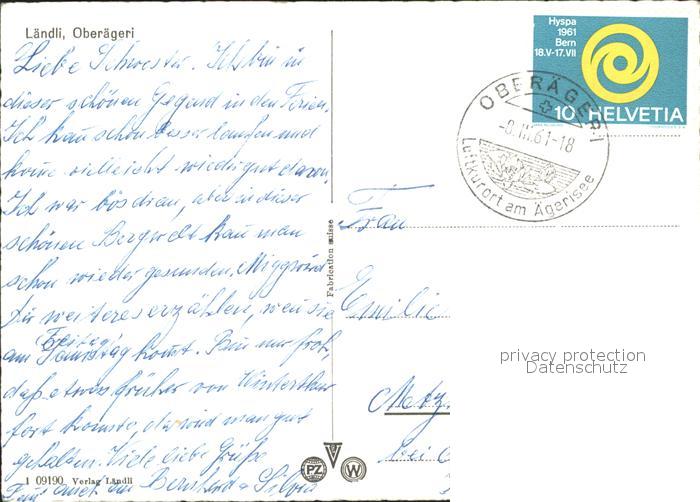 Ländli, Oberägeri
Liebe Schwester. Ich bin in
dieser schönen Gegend in den Ferien.
Ich kan schon besser laufen und
kome vielleicht wieder gut davon.
Ich war bös dran, aber in dieser
schönen Bergwelt kan man
schon wieder gesunden.
Dir weiteres erzählen, wen sie
am Freitag Samstag komt. Bin nur froh,
daß etwas früher von Winterthur
fort konnte, da wird man gut
gehalten. Viele liebe Grüße
auch an Bernhard & Silvia
1 09190 Verlag Ländli
Fabrication suisse
PZ
W
Hyspa
1961
Bern
18.V-17.VII
10 HELVETIA
OBERÄGERI
61-18
Luftkurort am Ägerisee
Frau
Emilie
Metz
bei
privacy protection
Datenschutz